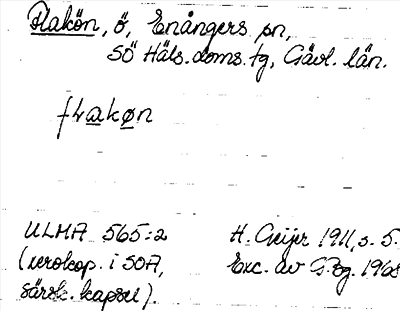 Flakön, ö, Enångers sn,
SÖ Häls. doms. tg, Gävl. län.
flakøn
ULMA 565:2 H. Geijer 1911, s. 5.
(xerokop. i SOA, Exc. av G. Bg. 1968
särsk. kapsel).